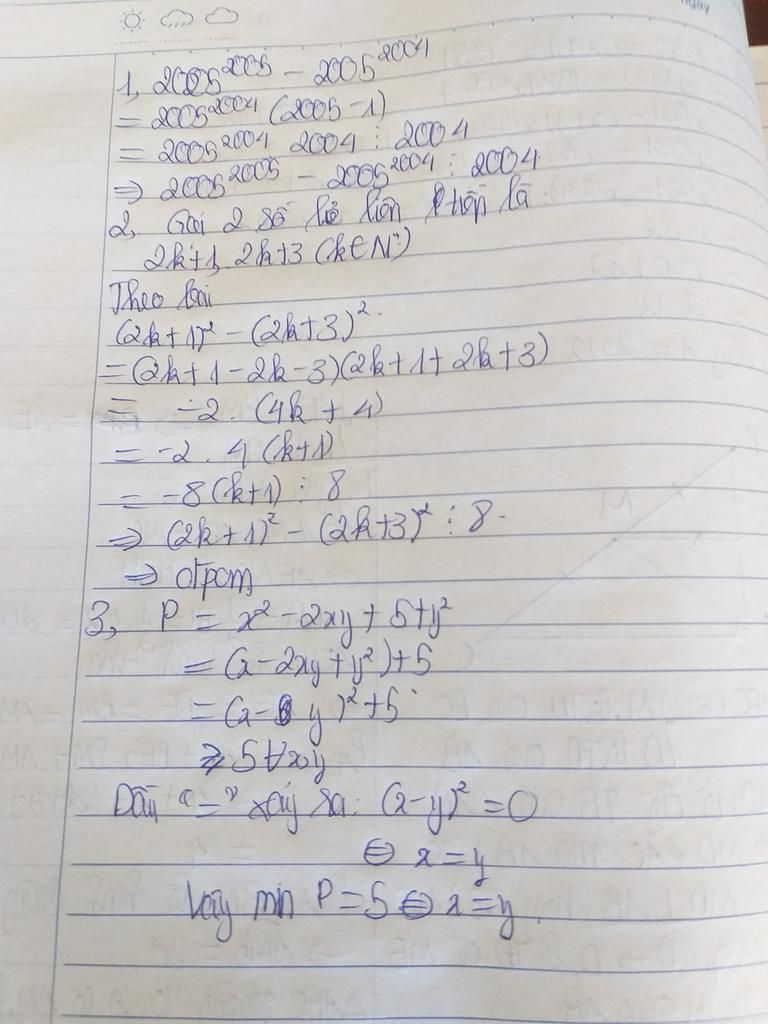 ngày
1, 2005^2005 - 2005^2004
= 2005^2004 (2005-1)
= 2005^2004 2004 ⋮ 2004
⇒ 2005^2005 - 2005^2004 ⋮ 2004
2, Gọi 2 số lẻ liên tiếp là:
2k+1, 2k+3 (k∈N*)
Theo bài
(2k+1)² - (2k+3)²
= (2k+1-2k-3)(2k+1+2k+3)
= -2. (4k+4)
= -2. 4(k+1)
= -8(k+1) ⋮ 8
⇒ (2k+1)² - (2k+3)² ⋮ 8.
⇒ đpcm
3, P = x² - 2xy + 5 + y²
= (x - 2xy + y²) + 5
= (x - y)² + 5
≥ 5 ∀x,y
Dấu "=" xảy ra: (x-y)² = 0
⇔ x = y
Vậy min P = 5 ⇔ x = y.